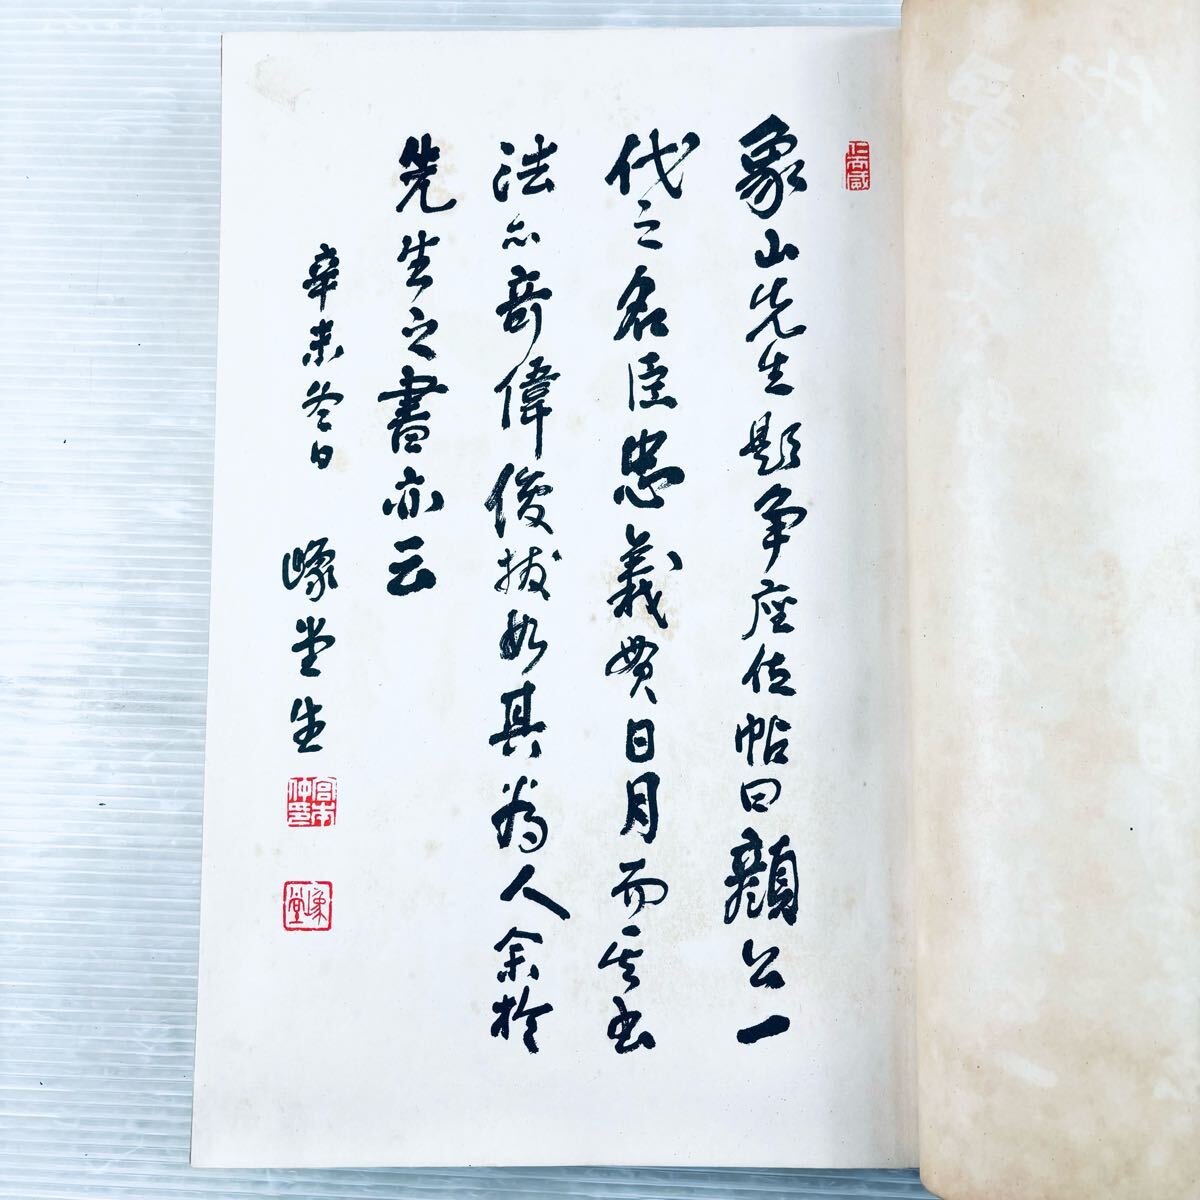 象山先生題争座位帖曰顔公一
代之名臣忠義貫日月而其書
法亦奇偉俊抜如其為人余於
先生之書亦云
辛未冬日
㟴堂生